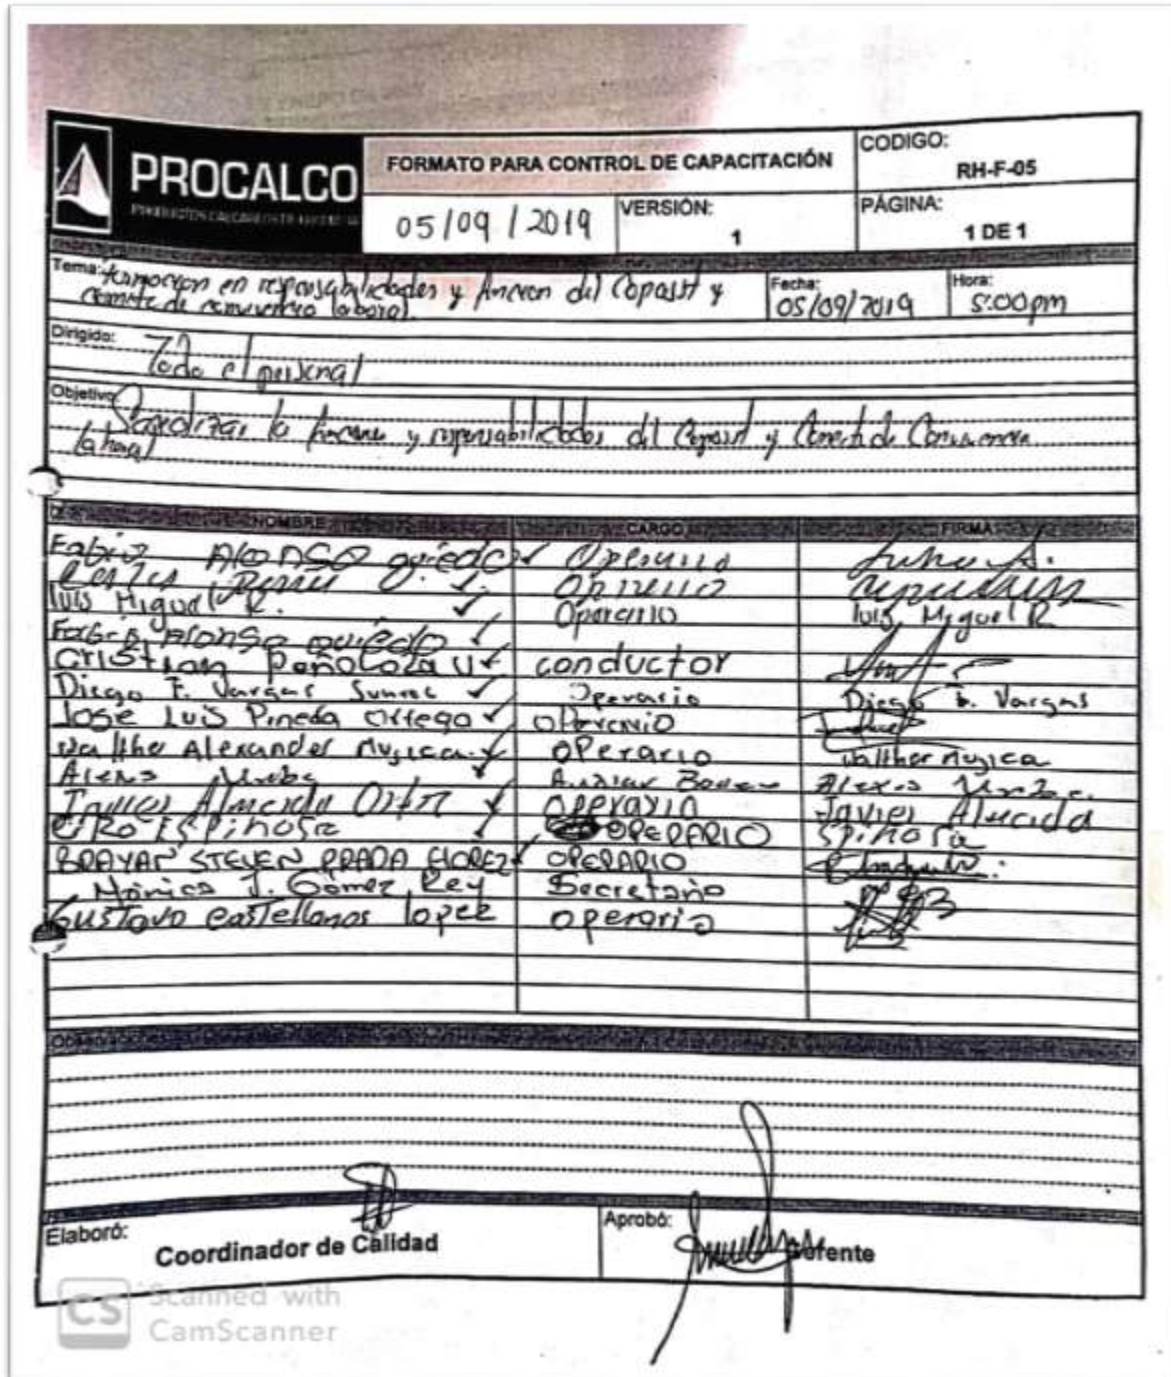 PROCALCO
FORMATO PARA CONTROL DE CAPACITACIÓN
CODIGO:
RH-F-05
05/09/2019
VERSIÓN:
1
PÁGINA:
1 DE 1
Tema: en responsabilidades y del Copasst y
comite de laboral.
Fecha:
05/09/2019
Hora:
5:00pm
Dirigido: Todo el personal
Objetivo: y responsabilidades del Copasst y de
laboral
NOMBRE CARGO FIRMA
Fabio Alonso oviedo ✓ Operario
✓
luis Miguel R. ✓ Operario luis Miguel R
Fabio Alonso oviedo ✓
Cristian Peñaloza V ✓ conductor
Diego F. Vargas ✓ Operario Diego F. Vargas
Jose Luis Pineda Ortega ✓ operario
Walther Alexander Mujica ✓ operario Walther Mujica
Alexis ✓ Alexis
Javier Almeida Ortiz ✓ operario Javier Almeida
CIRO ESPINOSA ✓ OPERARIO SPINOSA
BRAYAN STEVEN PRADA FLOREZ ✓ OPERARIO
Monica J. Gómez Rey Secretario
Gustavo castellanos lopez operario
Observaciones
Elaboró:
Coordinador de Calidad
Aprobó:
Gerente
CS Scanned with
CamScanner